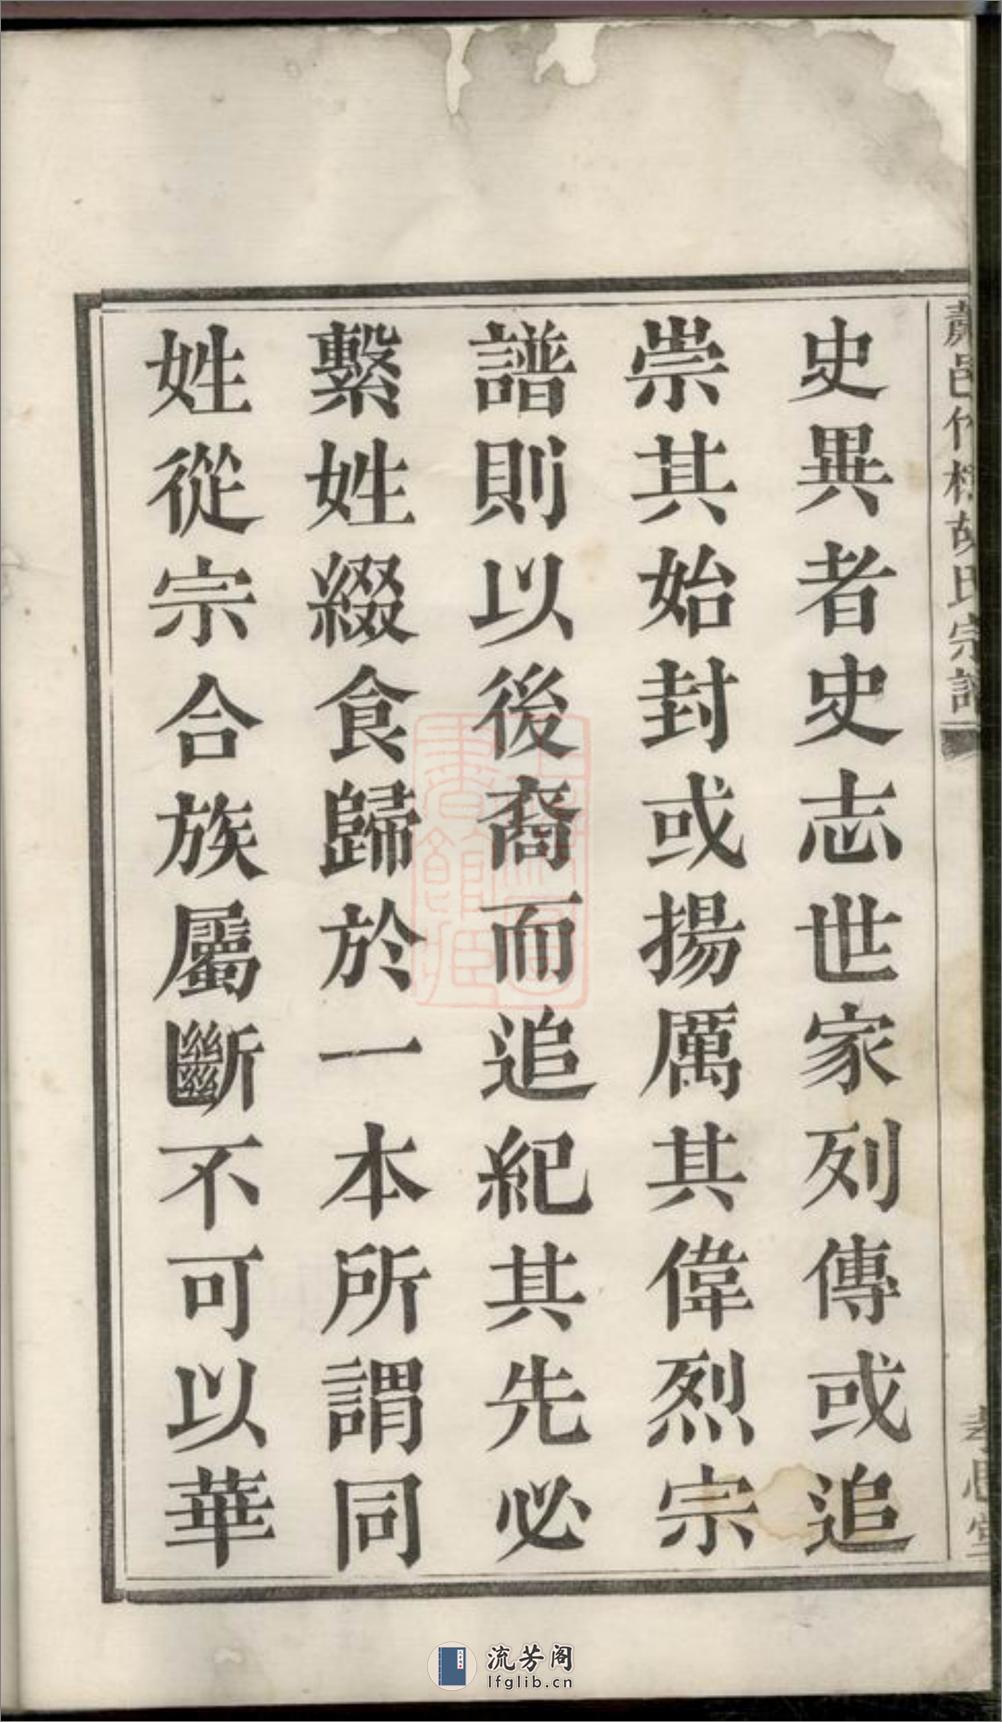 史異者史志世家列傳或追
崇其始封或揚厲其偉烈宗
譜則以後裔而追紀其先必
繫姓綴食歸於一本所謂同
姓從宗合族屬斷不可以華
流芳阁
lfglib.cn